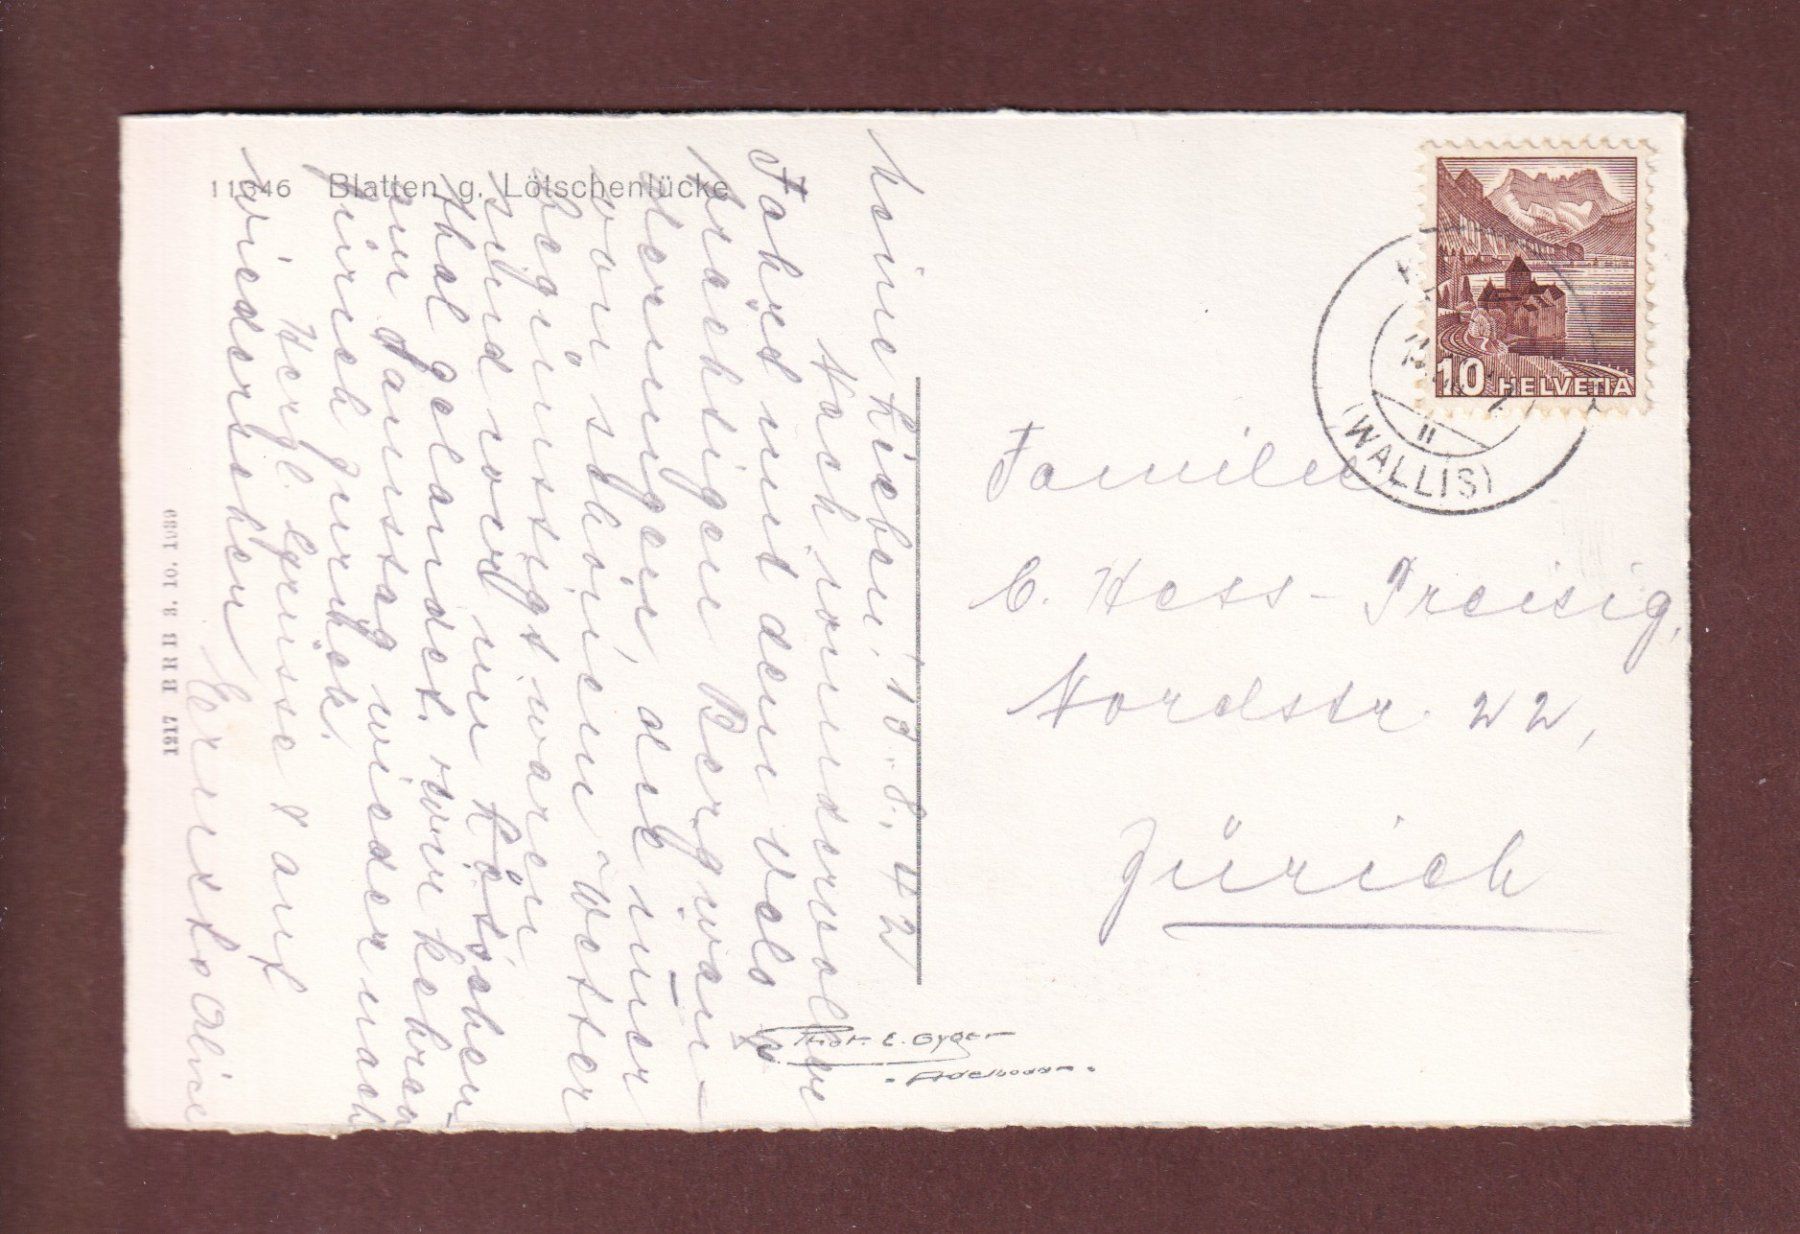 11346 Blatten g. Lötschenlücke
Meine Lieben! 18.8.42
Nach wundervoller
Fahrt mit dem Velo &
prächtigen Bergwan-
derungen, die immer
von schönem Wetter
begünstigt waren
sind wir im Lötschen-
thal gelandet. Wir kehren
am Samstag wieder nach
Zürich zurück.
Herzl. Grüsse & auf
Wiedersehen
Ernst & Alice
1217 BRB 3. 10. 1939
Phot. E. Gyger
Adelboden
10 HELVETIA
(WALLIS)
Familie
C. Hess-Preisig,
Nordstr. 22,
Zürich